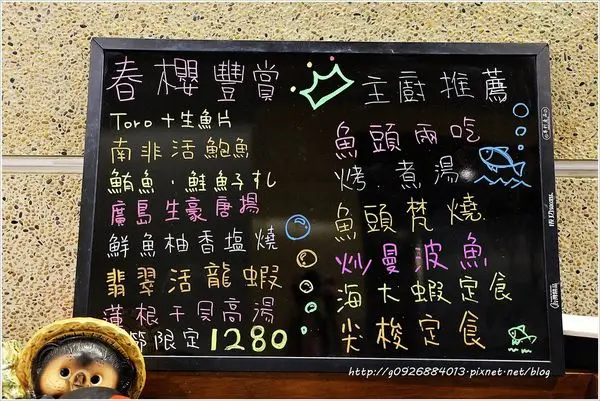 春櫻豐賞
Toro+生魚片
南非活鮑魚
鮪魚.鮭魚子札
廣島生豪唐揚
鮮魚柚香塩燒
翡翠活龍蝦
蓮根干貝高湯
節限定1280
主廚推薦
魚頭兩吃
烤.煮湯
魚頭梵燒
炒曼波魚
海大蝦定食
尖梭定食
http://g0926884013.pixnet.net/blog